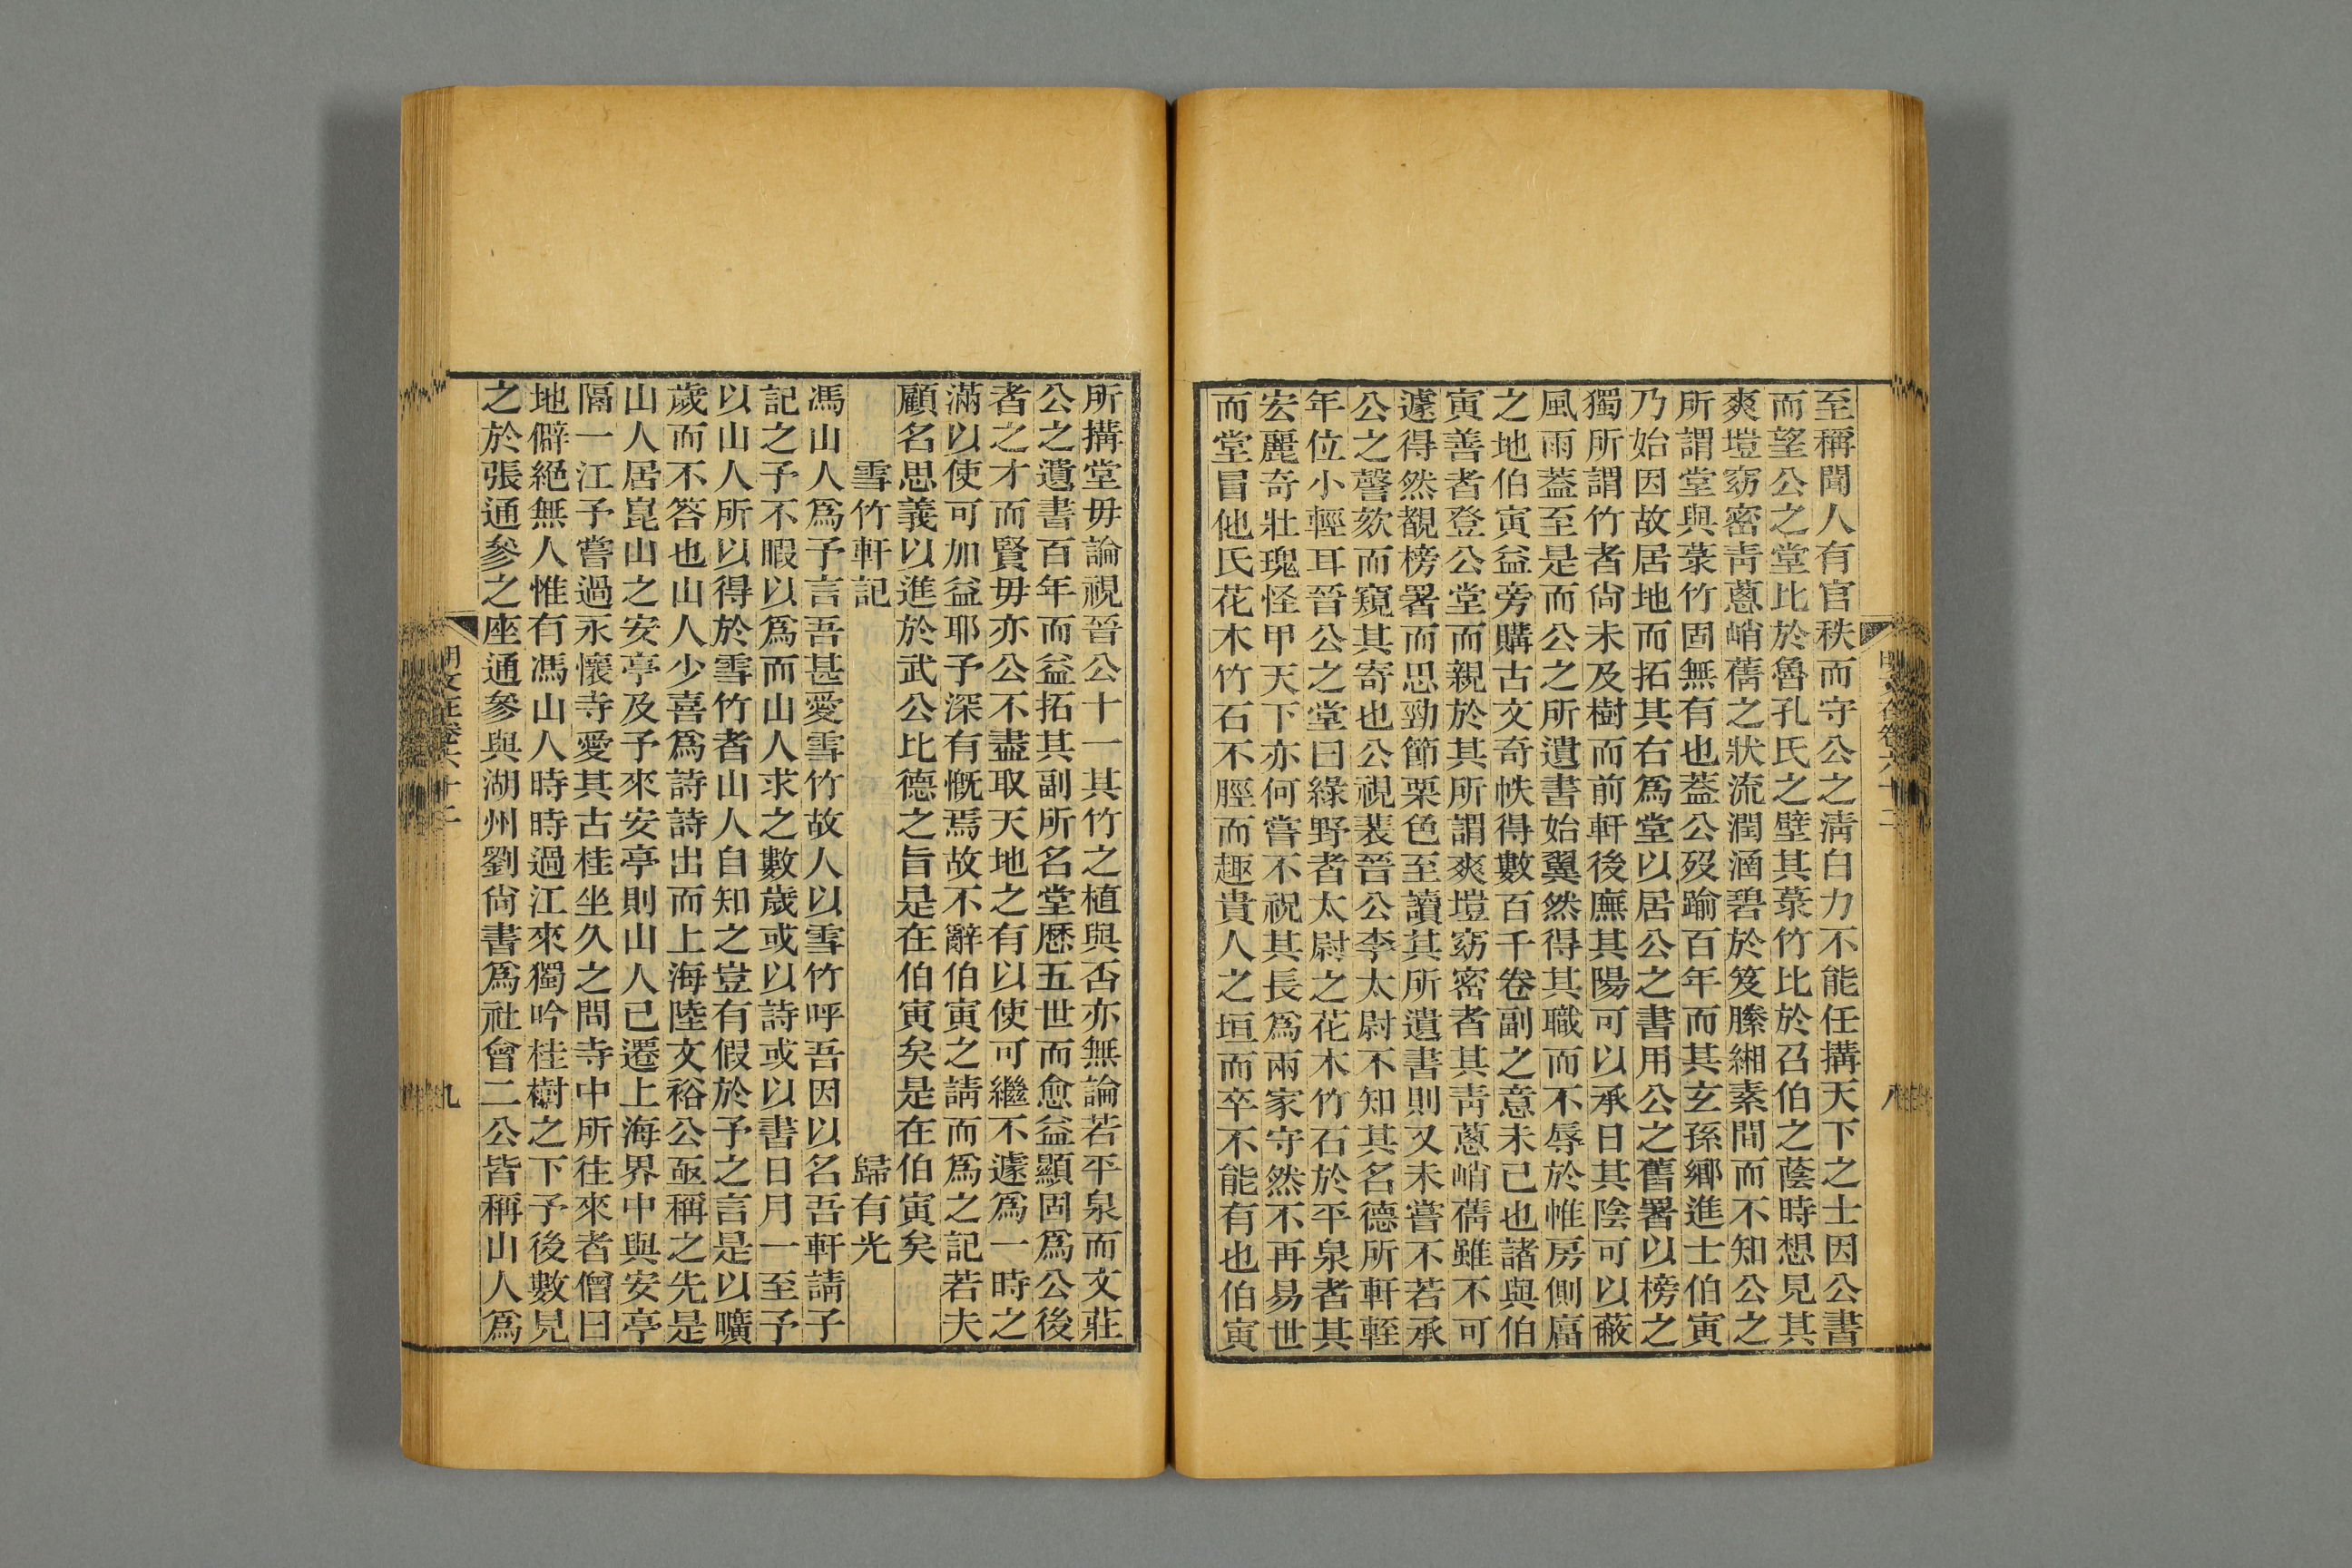 至稱聞人有官秩而守公之淸白力不能任搆天下之士因公書
而望公之堂比於魯孔氏之壁其菉竹比於召伯之蔭時想見其
爽塏窈密靑蔥峭蒨之狀流潤涵碧於笈縢緗素間而不知公之
所謂堂與菉竹固無有也蓋公歿踰百年而其玄孫鄉進士伯寅
乃始因故居地而拓其右爲堂以居公之書用公之舊署以榜之
獨所謂竹者尙未及樹而前軒後廡其陽可以承日其陰可以蔽
風雨蓋至是而公之所遺書始翼然得其職而不辱於帷房側扂
之地伯寅益旁購古文奇帙得數百千卷副之意未已也諸與伯
寅善者登公堂而親於其所謂爽塏窈密者其靑蔥峭蒨雖不可
遽得然覩榜署而思勁節栗色至讀其所遺書則又未嘗不若承
公之謦欬而窺其寄也公視裴晉公李太尉不知其名德所軒輊
年位小輕耳晉公之堂曰綠野者太尉之花木竹石於平泉者其
宏麗奇壯瑰怪甲天下亦何嘗不祝其長爲兩家守然不再易世
而堂冒他氏花木竹石不脛而趣貴人之垣而卒不能有也伯寅
八
所搆堂毋論視晉公十一其竹之植與否亦無論若平泉而文莊
公之遺書百年而益拓其副所名堂歷五世而愈益顯固爲公後
者之才而賢毋亦公不盡取天地之有以使可繼不遽爲一時之
滿以使可加益耶予深有慨焉故不辭伯寅之請而爲之記若夫
顧名思義以進於武公比德之旨是在伯寅矣是在伯寅矣
雪竹軒記 歸有光
馮山人爲予言吾甚愛雪竹故人以雪竹呼吾因以名吾軒請子
記之予不暇以爲而山人求之數歲或以詩或以書日月一至予
以山人所以得於雪竹者山人自知之豈有假於予之言是以曠
歲而不答也山人少喜爲詩詩出而上海陸文裕公亟稱之先是
山人居崑山之安亭及予來安亭則山人已遷上海界中與安亭
隔一江予嘗過永懷寺愛其古桂坐久之問寺中所往來者僧曰
地僻絕無人惟有馮山人時時過江來獨吟桂樹之下予後數見
之於張通參之座通參與湖州劉尙書爲社會二公皆稱山人爲
明文在卷六十二
九